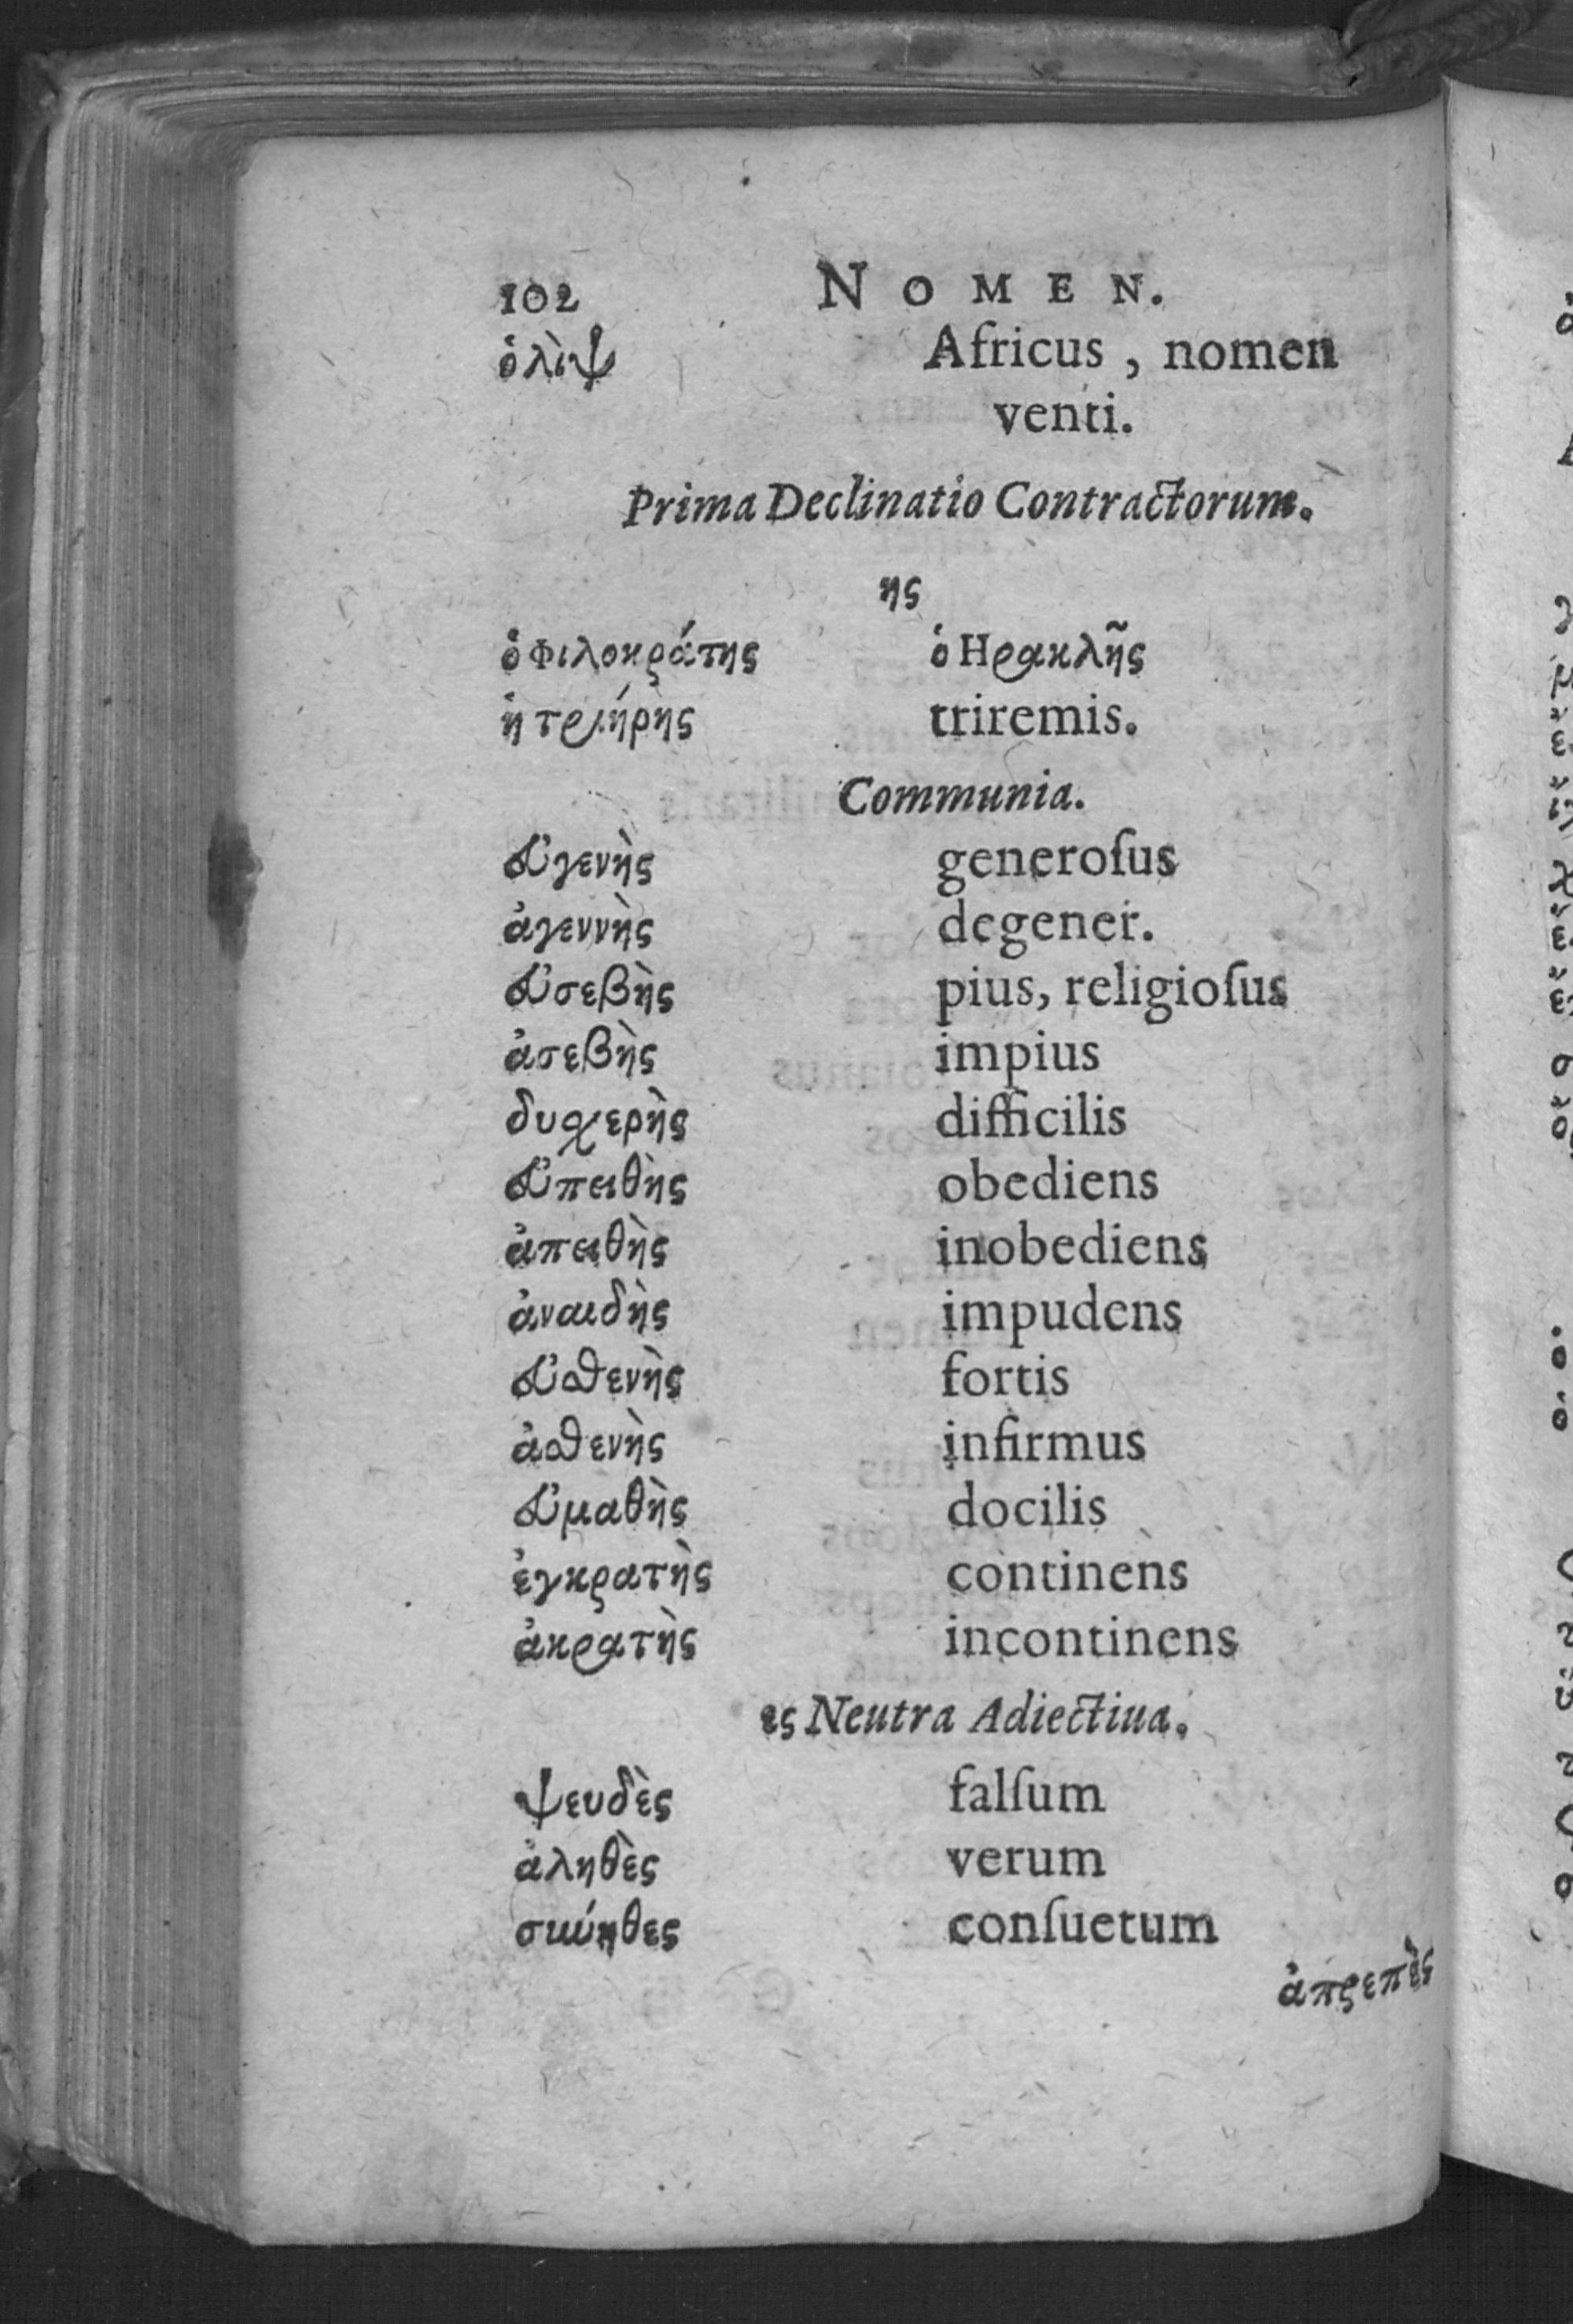 102 NOMEN.
ὁ λὶψ Africus, nomen
venti.
Prima Declinatio Contractorum.
ης
ὁ Φιλοκράτης ὁ Ηρακλῆς
ἡ τριήρης triremis.
Communia.
εὐγενὴς generoſus
ἀγεννὴς degener.
εὐσεβὴς pius, religioſus
ἀσεβὴς impius
δυσχερὴς difficilis
εὐπειθὴς obediens
ἀπειθὴς inobediens
ἀναιδὴς impudens
εὐσθενὴς fortis
ἀσθενὴς infirmus
εὐμαθὴς docilis
ἐγκρατὴς continens
ἀκρατὴς incontinens
ες Neutra Adiectiua.
ψευδὲς falſum
ἀληθὲς verum
συνήθες conſuetum
ἀπρεπὲς